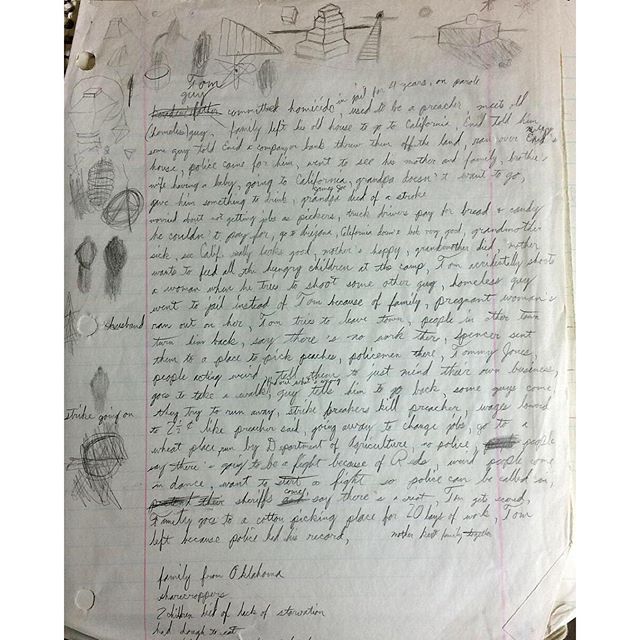 Tom
guy committed homicide, in jail for 4 years, on parole
used to be a preacher, meets old
(homeless) guy, family left his old house to go to California, End told him
some guy told End a company or bank threw them off the land, ran over End's
house, police came for him, went to see his mother and family, brother's
wife having a baby, going to California, grandpa doesn't want to go,
gave him something to drink, grandpa died of a stroke
worried about not getting jobs as pickers, truck drivers pay for bread & candy
he couldn't pay for, go to Arizona, California doesn't look very good, grandmother
sick, see Calif. really looks good, mother's happy, grandmother died, mother
wants to feed all the hungry children at the camp, Tom accidentally shoots
a woman when he tries to shoot some other guy, homeless guy
went to jail instead of Tom because of family, pregnant woman's
husband
ran out on her, Tom tries to leave town, people in other town
turn him back, say there's no work there, Spencer sent
them to a place to pick peaches, policemen there, Tommy Joves,
people acting weird, tell them to just mind their own business,
goes to take a walk, guy tells him to go back, some guys come,
strike going on
they try to run away, strike breakers kill preacher, wages lowered
to 2½ ¢ like preacher said, going away to change jobs, go to a
wheat place run by Department of Agriculture, no police, people
say there's going to be a fight because of Reds, weird people come
in dance, want to start a fight so police can be called in,
sheriffs come say there's a riot, Tom gets scared,
Family goes to a cotton picking place for 20 days of work, Tom
left because police had his record, mother kept family together
family from Oklahoma
sharecroppers
2 children died of lack of starvation
had dough to eat